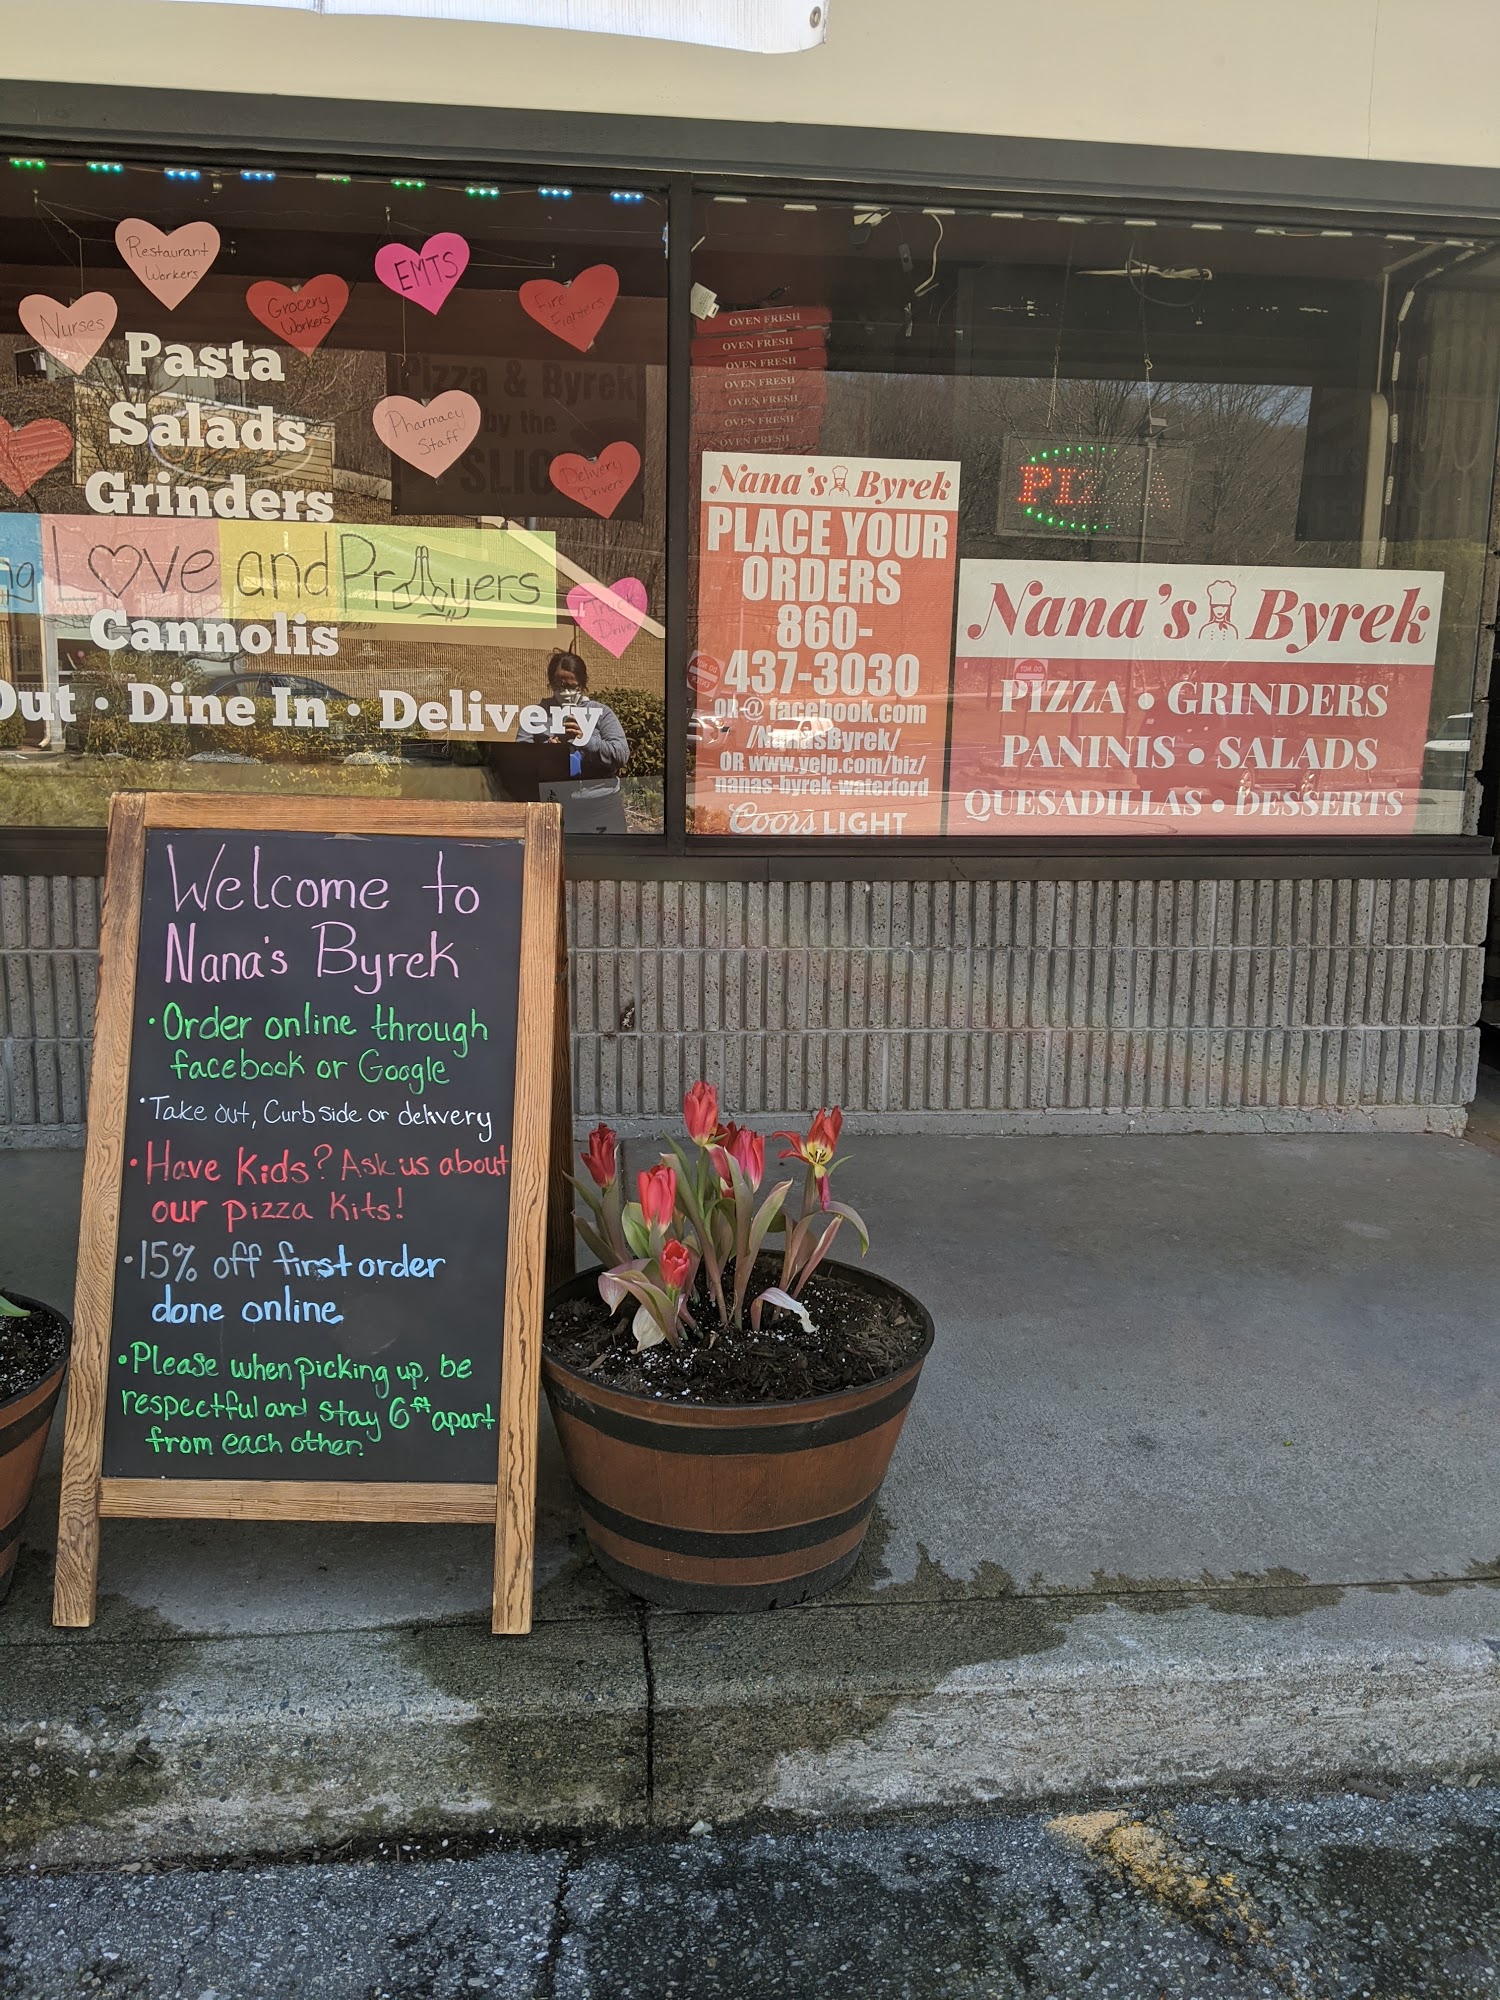 Restaurant
Workers
EMTS
Nurses
Grocery
Workers
Fire
Fighters
Pharmacy
Staff
Delivery
Drivers
Pasta
Salads
Grinders
Love and Prayers
Cannolis
Out • Dine In • Delivery
Truck
Drivers
Pizza & Byrek
by the
SLIC
OVEN FRESH
OVEN FRESH
OVEN FRESH
OVEN FRESH
OVEN FRESH
OVEN FRESH
OVEN FRESH
PIZZA
Nana's Byrek
PLACE YOUR
ORDERS
860-
437-3030
OR @ facebook.com
/NanasByrek/
OR www.yelp.com/biz/
nanas-byrek-waterford
Coors LIGHT
Nana's Byrek
PIZZA • GRINDERS
PANINIS • SALADS
QUESADILLAS • DESSERTS
Welcome to
Nana's Byrek
• Order online through
facebook or Google
• Take out, Curbside or delivery
• Have Kids? Ask us about
our pizza kits!
• 15% off first order
done online
• Please when picking up, be
respectful and stay 6ft apart
from each other.